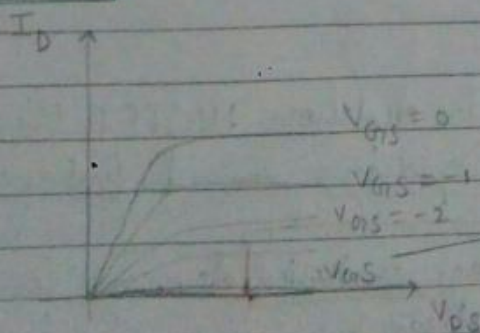 I_D
V_GS = 0
V_GS = -1
V_GS = -2
V_GS
V_DS